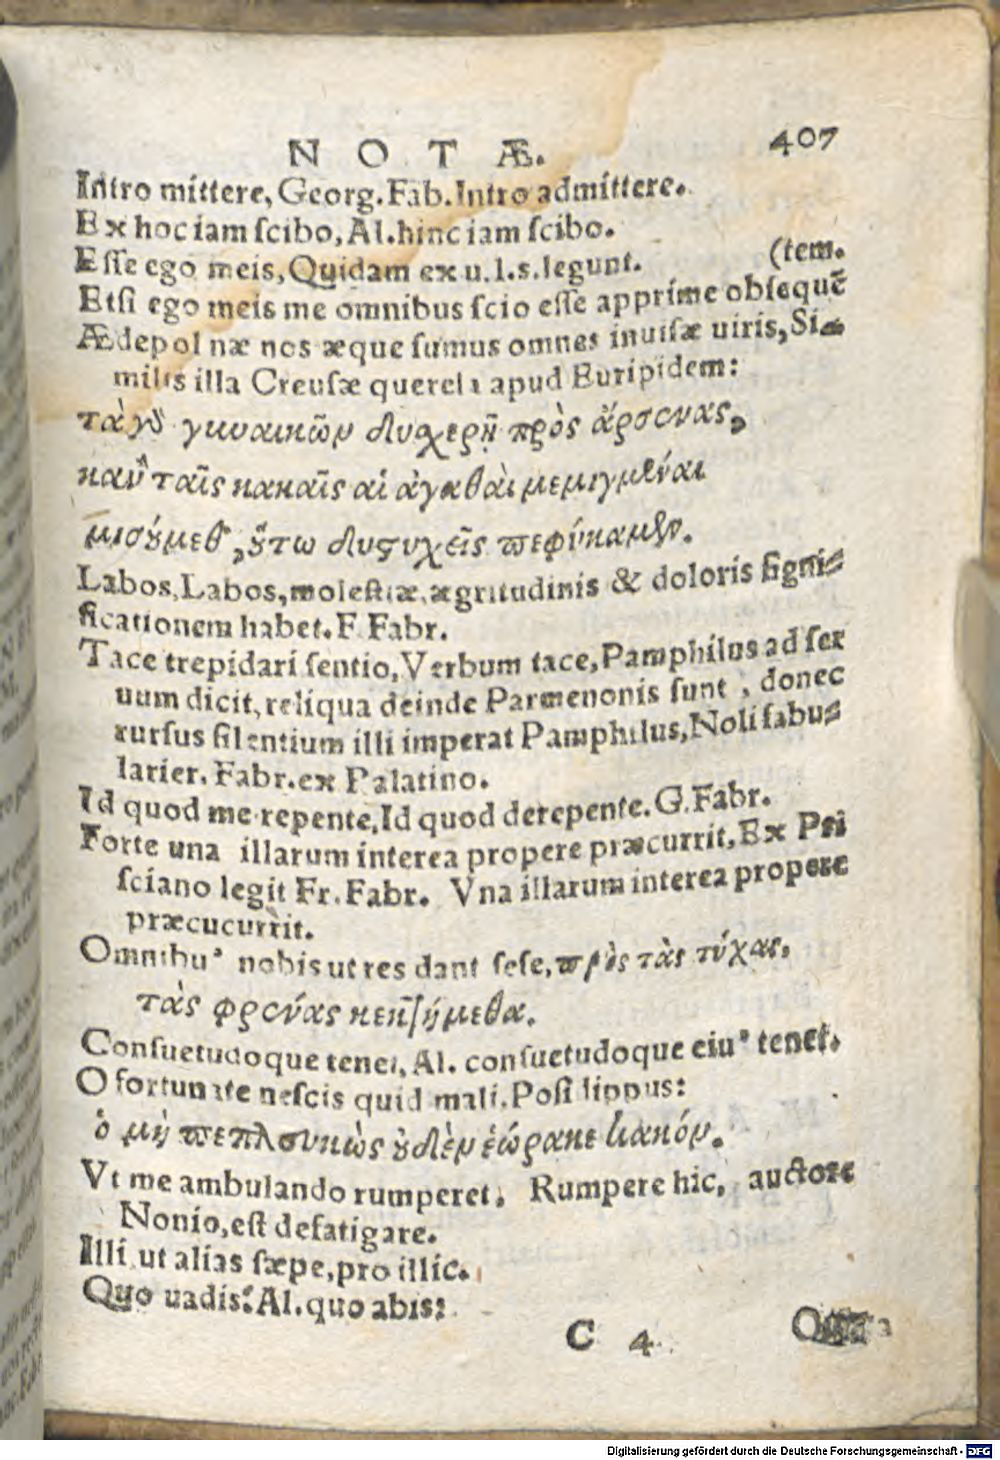 NOTÆ. 407
Intro mittere, Georg. Fab. Intro admittere.
Ex hoc iam scibo, Al. hinc iam scibo.
Esse ego meis, Quidam ex u. l. s. legunt. (tem.
Etsi ego meis me omnibus scio esse apprime obsequē
Ædepol næ nos æque sumus omnes inuisæ uiris, Si-
milis illa Creusæ querela apud Euripidem:
τὰ γὸ γυναικῶν δυσχερῆ πρὸς ἄρσενας,
καν ταῖς κακαῖς αἱ ἀγαθαὶ μεμιγμέναι
μισούμεθ, οὕτω δυστυχεῖς πεφύκαμεν.
Labos, Labos, molestiæ, ægritudinis & doloris signi-
ficationem habet. F Fabr.
Tace trepidari sentio, Verbum tace, Pamphilus ad ser
uum dicit, reliqua deinde Parmenonis sunt, donec
rursus silentium illi imperat Pamphilus, Noli fabu-
larier. Fabr. ex Palatino.
Id quod me repente, Id quod derepente. G. Fabr.
Forte una illarum interea propere præcurrit, Ex Pri
sciano legit Fr. Fabr. Vna illarum interea propere
præcucurrit.
Omnibu' nobis ut res dant sese, πρὸς τὰς τύχας,
τὰς φρένας κεκτήμεθα.
Consuetudoque tenet, Al. consuetudoque eiu' tenet.
O fortunate nescis quid mali. Posilippus:
ὁ μὴ πεπλευκὼς οὐδὲν ἑώρακε κακόν.
Vt me ambulando rumperet, Rumpere hic, auctore
Nonio, est defatigare.
Illi ut alias sæpe, pro illic.
Quo uadis? Al. quo abis?
C 4
Digitalisierung gefördert durch die Deutsche Forschungsgemeinschaft - DFG